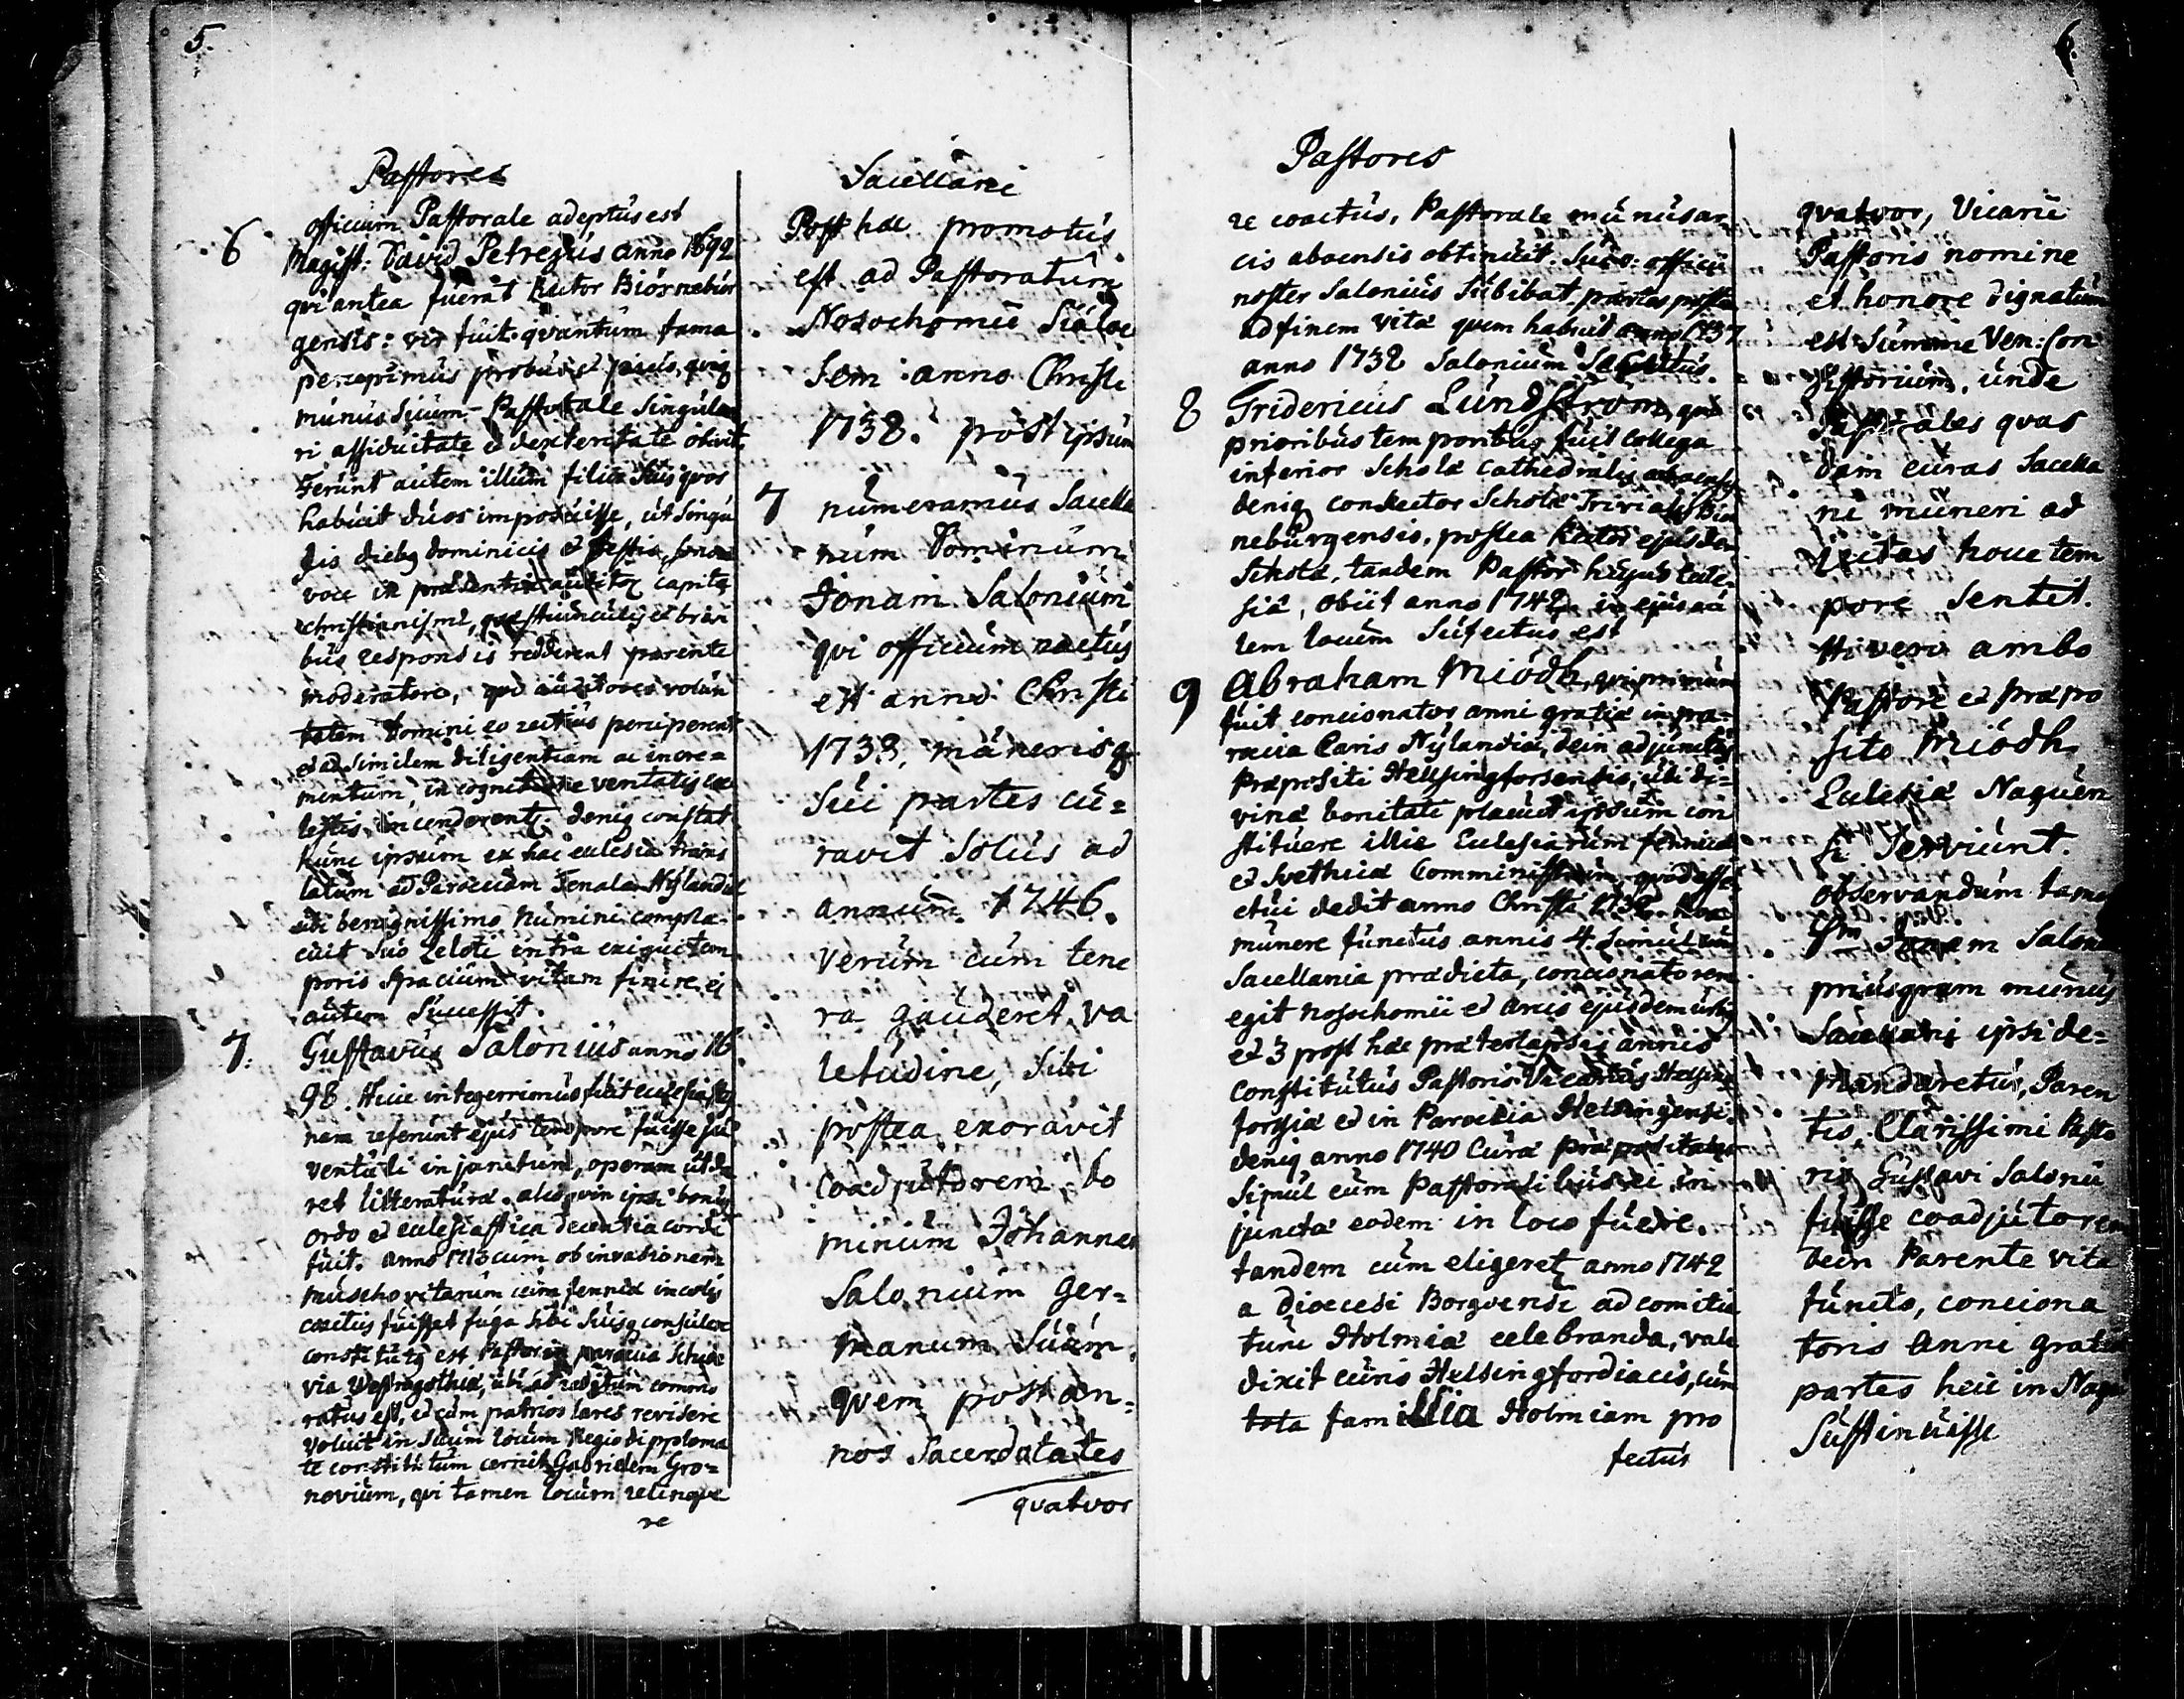 5
Pastores
officium Pastorale adeptus est
6 Magist: David Petrejus anno 1692
qvi antea fuerat Rector Biörnebur
gensis: vir fuit qvantum fama
percepimus probus et pius, qviq
munus suum Pastorale singula
ri assiduitate et dexteritate obivit
Ferunt autem illum filiis suis qvos
habuit duos imposuisse, ut singu
lis diebq dominicis et festis, sonora
voce in præsentia auditor capita
christianismi, qvæstiunculis et brevi
bus responsis redderent parente
moderatore, qvo auditores volun
tatem Domini eo rectius perciperent
et ad similem diligentiam ac incre=
mentum, in cognitione veritatis cæ
lestis, incenderent. deniq constat
hunc ipsum ex hac ecclesia trans
latum ad Paroeciam Tenala Nylandiæ
ubi benignissimo Numini compla=
cuit suo Zeloti intra exiguum tem
poris spacium vitam finire, ei
autem successit.
7. Gustavus Salonius anno 16
98. Huic integerrimus fuit ecclesiastes
nam referunt ejus tempore fuisse ju
ventuti injunctum, operam ut da
ret litteraturæ, alioqvin ipsi bonus
ordo et ecclesiastica decentia cordi
fuit. anno 1713 cum ob invasionem
muschovitarum cum fenniæ incolis
coactus fuisset fuga sibi suisq consulere
constitutq est Pastor in paroecia Schede
via Westrogothiæ, ubi ad reditum commo
ratus est, et cum patrios lares revisere
voluit in suum locum Regio dipploma
te constitutum cernit Gabrielem Gro=
novium, qvi tamen locum relinqve
re
Sacellani
Post hæc promotus
est ad Pastoratum
Nosochomii Siälöe
sem anno Christi
1738. post ipsum
7 numeramus Sacella
num Dominum
Jonam Salonium
qvi officium nactus
est anno Christi
1738, munerisq
sui partes cu=
ravit solus ad
annum 1746.
Verum cum tene
ra gauderet va
letudine, sibi
postea exoravit
Coadjutorem, do
minum Johannem
Salonium ger=
manum suum,
qvem post an=
nos sacerdotales
qvatvor
6.
Pastores
re coactus, Pastorale munus ar
cis aboensis obtinuit. Suo: officii
noster Salonius subibat partes postea
ad finem vitæ qvem habuit anno 1737
anno 1738 Salonium Secutus
8 Fridericus Lundström, qvi
prioribus temporibus fuit Collega
inferior Scholæ Cathedralis aboensis
deniq conRector Scholæ Trivialis Biör
neburgensis, postea Rector ejusdem
Scholæ, tandem Pastor hujus Eccle=
siæ, obiit anno 1742 in ejus au
tem locum suffectus est
9 Abraham Miödh qvi primum
fuit concionator anni gratiæ in pa=
roecia Caris Nylandiæ, dein adjunctus
Præpositi Helsingforsensis, ubi di=
vinæ bonitati placuit ipsum con
stituere illic Ecclesiarum fennicæ
et Svethicæ Comministrum, qvod esse
ei ui dedit anno Christi 1732. Hoc
munere functus annis 4. simul cum
Sacellania prædicta, concionatorem
egit nosochomii et arcis ejusdem urbis
et 3 post hæc præterlapsis annis
constitutus Pastoris Vicarius Helsing
forsiæ et in Paroecia Helsingensi.
deniq anno 1740 Cura præpositalis
simul cum Pastoralibus ei in
juncta eodem in loco fuere.
tandem cum eligeret anno 1742
a dioecesi Borgoensi ad comitia
tunc Holmiæ celebranda, vale
dixit curis Helsingfordiacis, cum
tota famillia Holmiam pro
fectus
qvatvor, Vicarii
Pastoris nomine
et honore dignatum
est summe Ven: Con
sistorium, unde
Pastorales qvas
dam curas Sacella
ni muneri ad
junctas hocce tem
pore sentit.
Hi vero ambo
Pastore et præpo
sito Miödh
Ecclesiæ Naguen
si serviunt.
observandum tamen
Jonam Salonium
priusqvam munus
Sacellani ipsi de=
mandaretur, Paren
tis, Clarissimi Pasto
ris Gustavi Salonii
fuisse coadjutorem
dein Parente vita
functo, conciona
toris anni gratiæ
partes heic in Nagu
sustinuisse